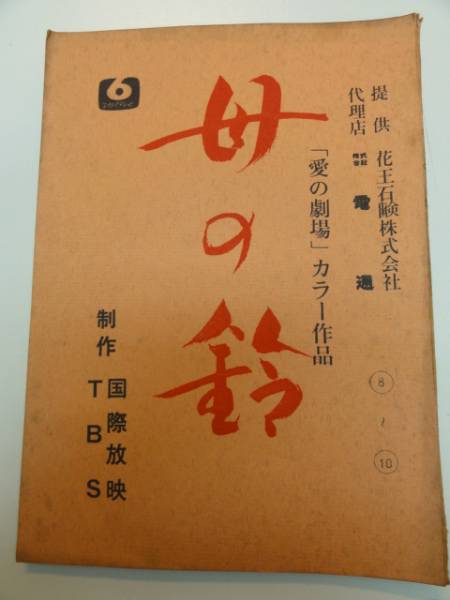 提供 花王石鹸株式会社
代理店 株式会社 電通
「愛の劇場」カラー作品
母の鈴
6
制作 国際放映
TBS
8
〜
10